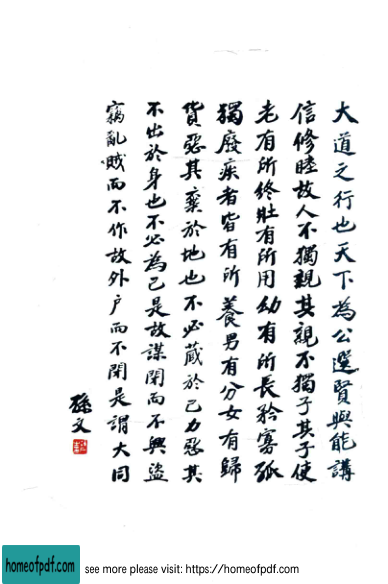 大道之行也天下為公選賢與能講
信修睦故人不獨親其親不獨子其子使
老有所終壯有所用幼有所長矜寡孤
獨廢疾者皆有所養男有分女有歸
貨惡其棄於地也不必藏於己力惡其
不出於身也不必為己是故謀閉而不興盜
竊亂賊而不作故外戶而不閉是謂大同
孫文
homeofpdf.com
see more please visit: https://homeofpdf.com